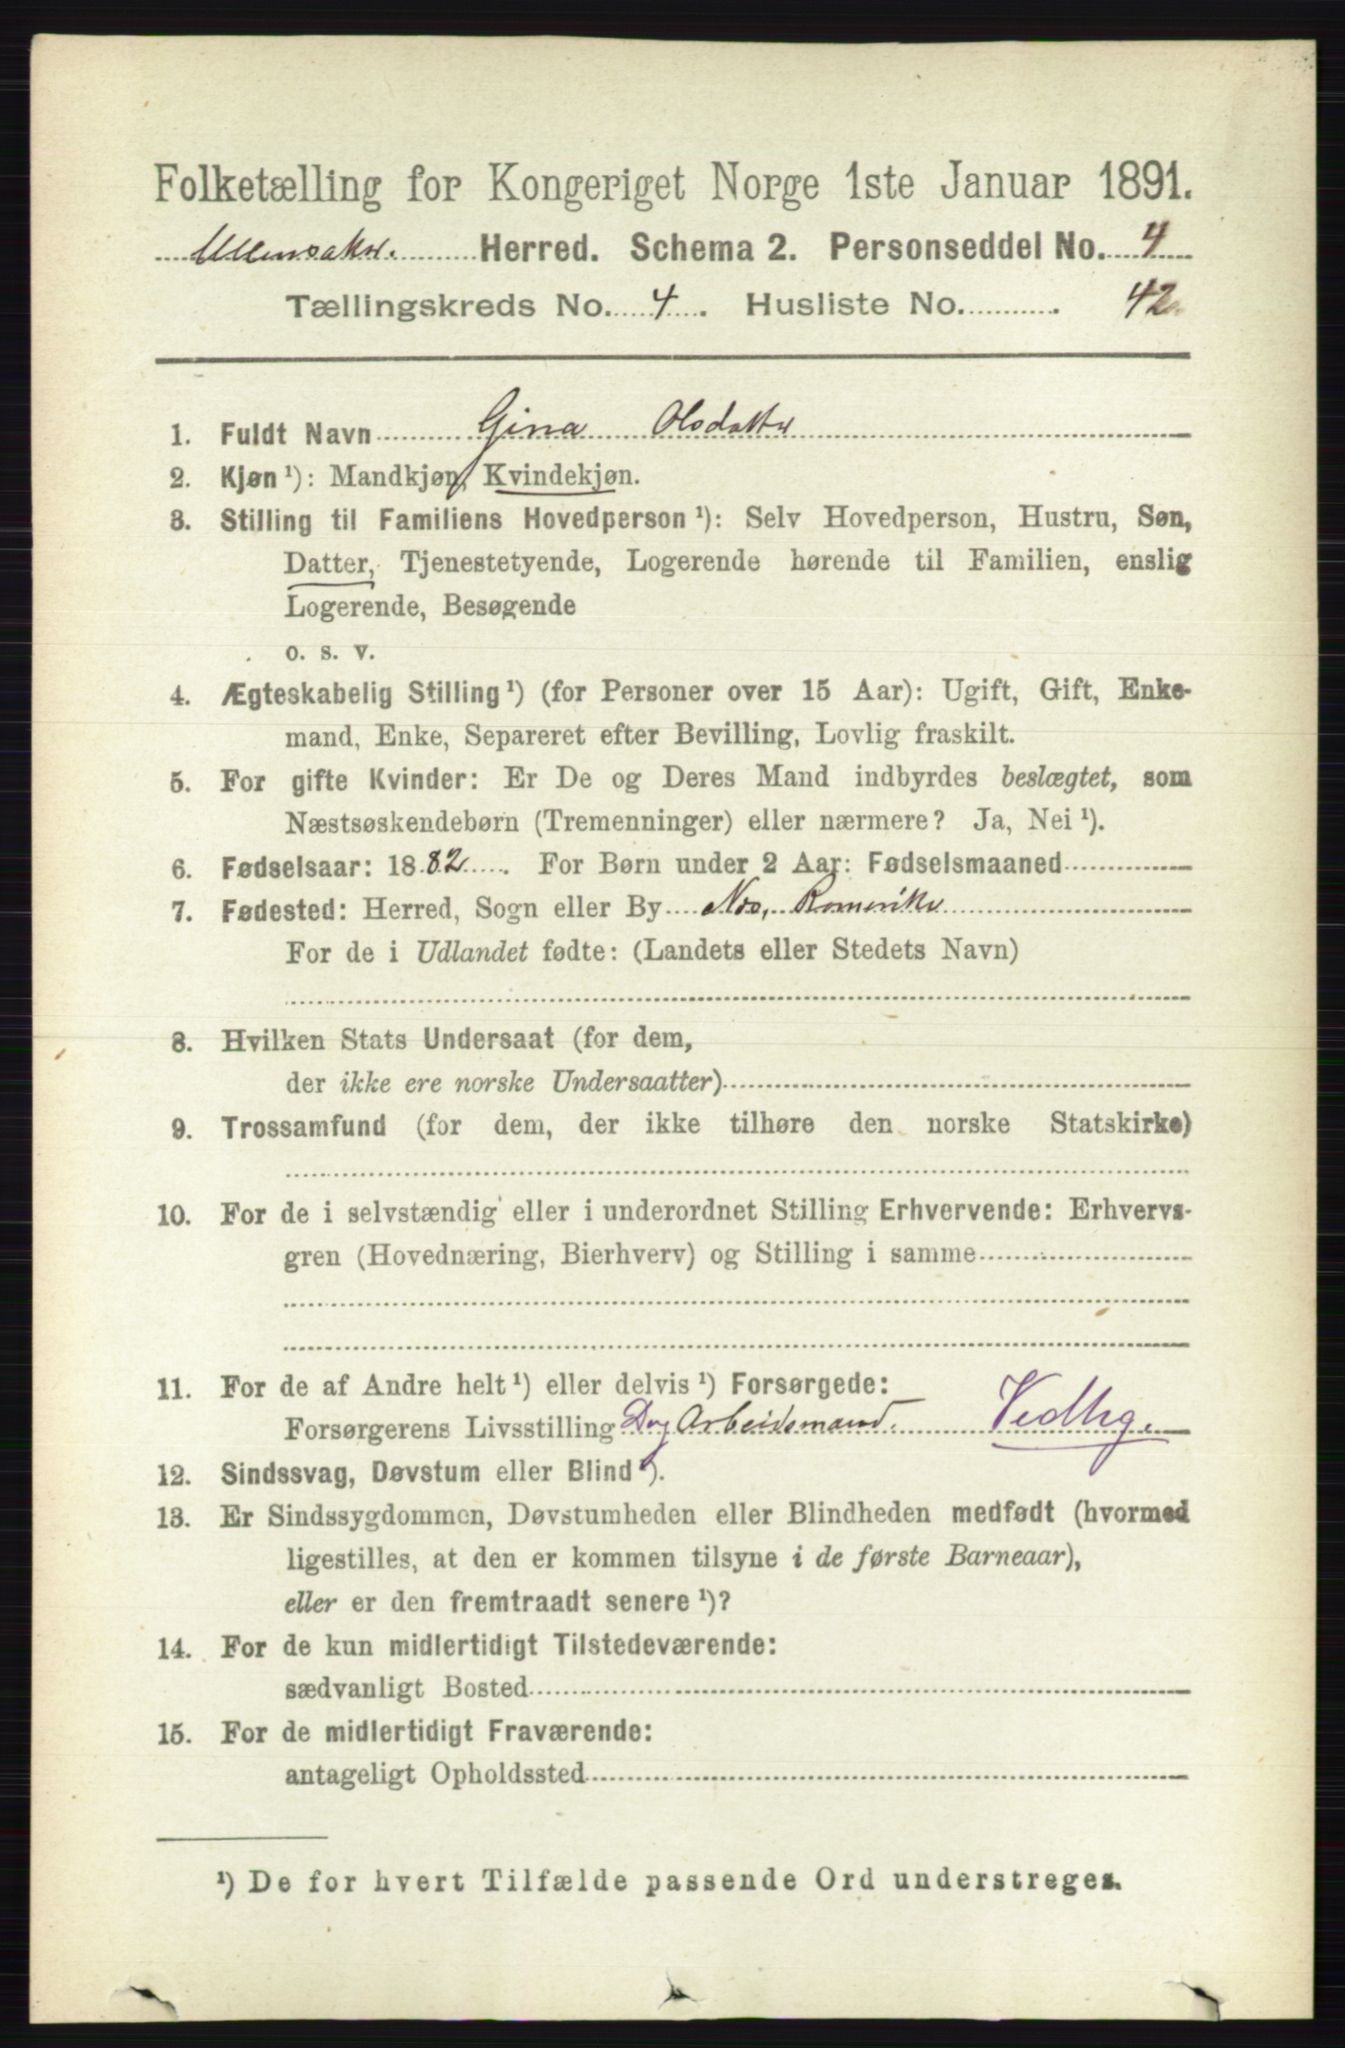 Folketælling for Kongeriget Norge 1ste Januar 1891.
Ullensaker. Herred. Schema 2. Personseddel No. 4
Tællingskreds No. 4. Husliste No. 42.
1. Fuldt Navn Gina Olsdatter
2. Kjøn ¹): Mandkjøn, Kvindekjøn.
3. Stilling til Familiens Hovedperson ¹): Selv Hovedperson, Hustru, Søn,
Datter, Tjenestetyende, Logerende hørende til Familien, enslig
Logerende, Besøgende
o. s. v.
4. Ægteskabelig Stilling ¹) (for Personer over 15 Aar): Ugift, Gift, Enke-
mand, Enke, Separeret efter Bevilling, Lovlig fraskilt.
5. For gifte Kvinder: Er De og Deres Mand indbyrdes beslægtet, som
Næstsøskendebørn (Tremenninger) eller nærmere? Ja, Nei ¹).
6. Fødselsaar: 1882. For Børn under 2 Aar: Fødselsmaaned
7. Fødested: Herred, Sogn eller By Nes, Romerike
For de i Udlandet fødte: (Landets eller Stedets Navn)
8. Hvilken Stats Undersaat (for dem,
der ikke ere norske Undersaatter)
9. Trossamfund (for dem, der ikke tilhøre den norske Statskirke)
10. For de i selvstændig eller i underordnet Stilling Erhvervende: Erhvervs-
gren (Hovednæring, Bierhverv) og Stilling i samme
11. For de af Andre helt ¹) eller delvis ¹) Forsørgede:
Forsørgerens Livsstilling Dag Arbeidsmand. Vedhg.
12. Sindssvag, Døvstum eller Blind ¹).
13. Er Sindssygdommen, Døvstumheden eller Blindheden medfødt (hvormed
ligestilles, at den er kommen tilsyne i de første Barneaar),
eller er den fremtraadt senere ¹)?
14. For de kun midlertidigt Tilstedeværende:
sædvanligt Bosted
15. For de midlertidigt Fraværende:
antageligt Opholdssted
¹) De for hvert Tilfælde passende Ord understreges.